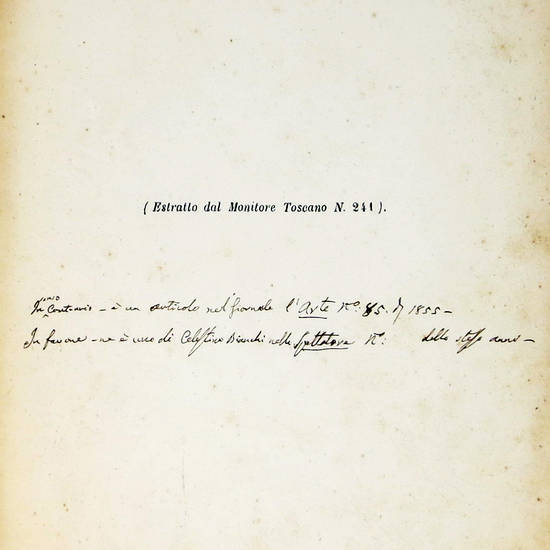 ( Estratto dal Monitore Toscano N. 241 ).
In Contrario – è un articolo nel giornale l'Arte N.º 85. 1855 –
In favore – ne è uno di Celestino Bianchi nello Spettatore N.º: dello stesso anno –